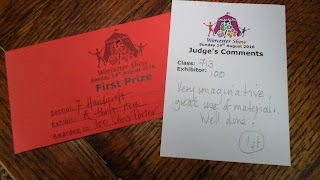 Worcester Show
Sunday 14th August 2016
First Prize
Section: 7 Handicraft
Exhibit: A
Awarded to: 100 Chris Parker
Worcester Show
Sunday 14th August 2016
Judge's Comments
Class: 713
Exhibitor: 100
Very imaginative
great use of materials.
Well done!
1st